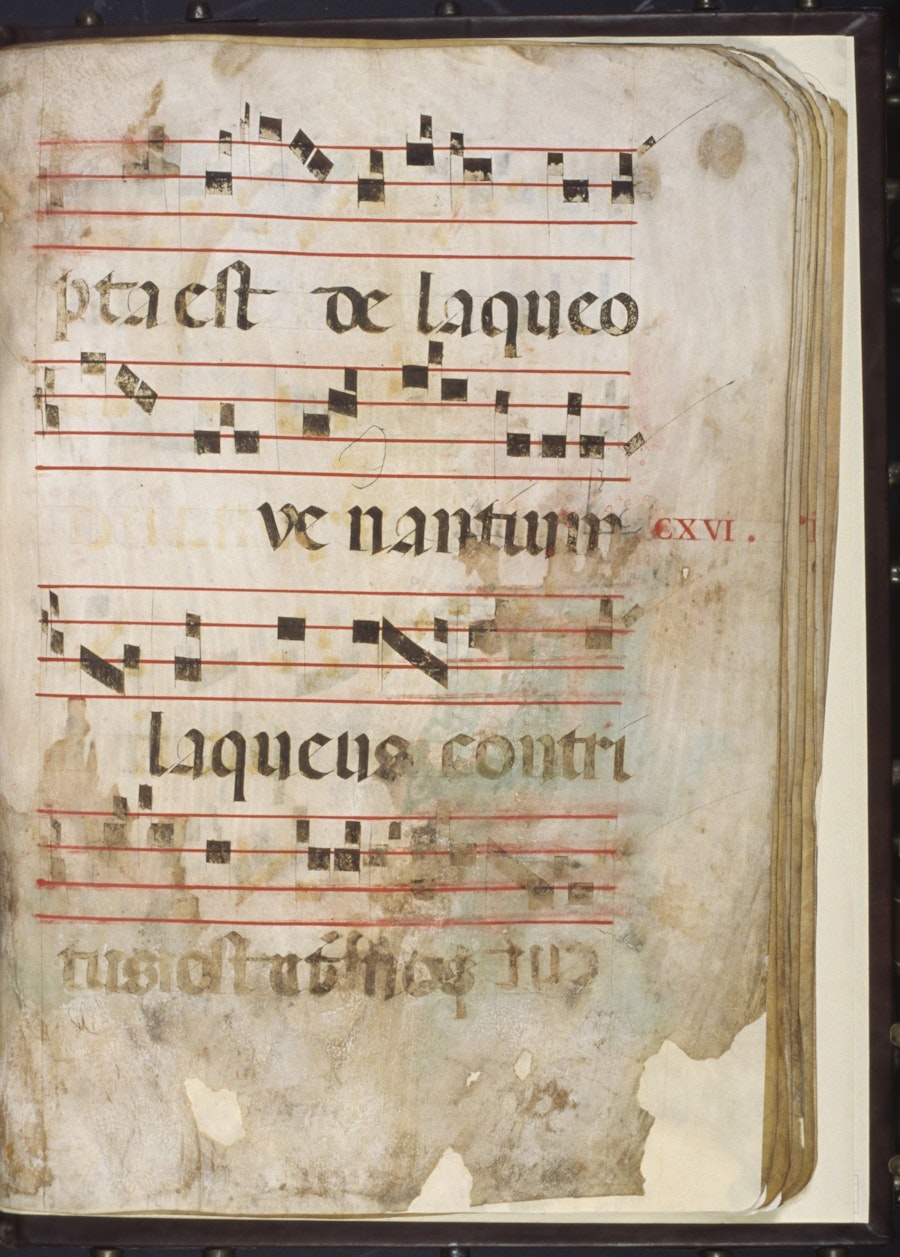 pta est de laqueo
ve nantium CXVI .
laqueus contri
tus est